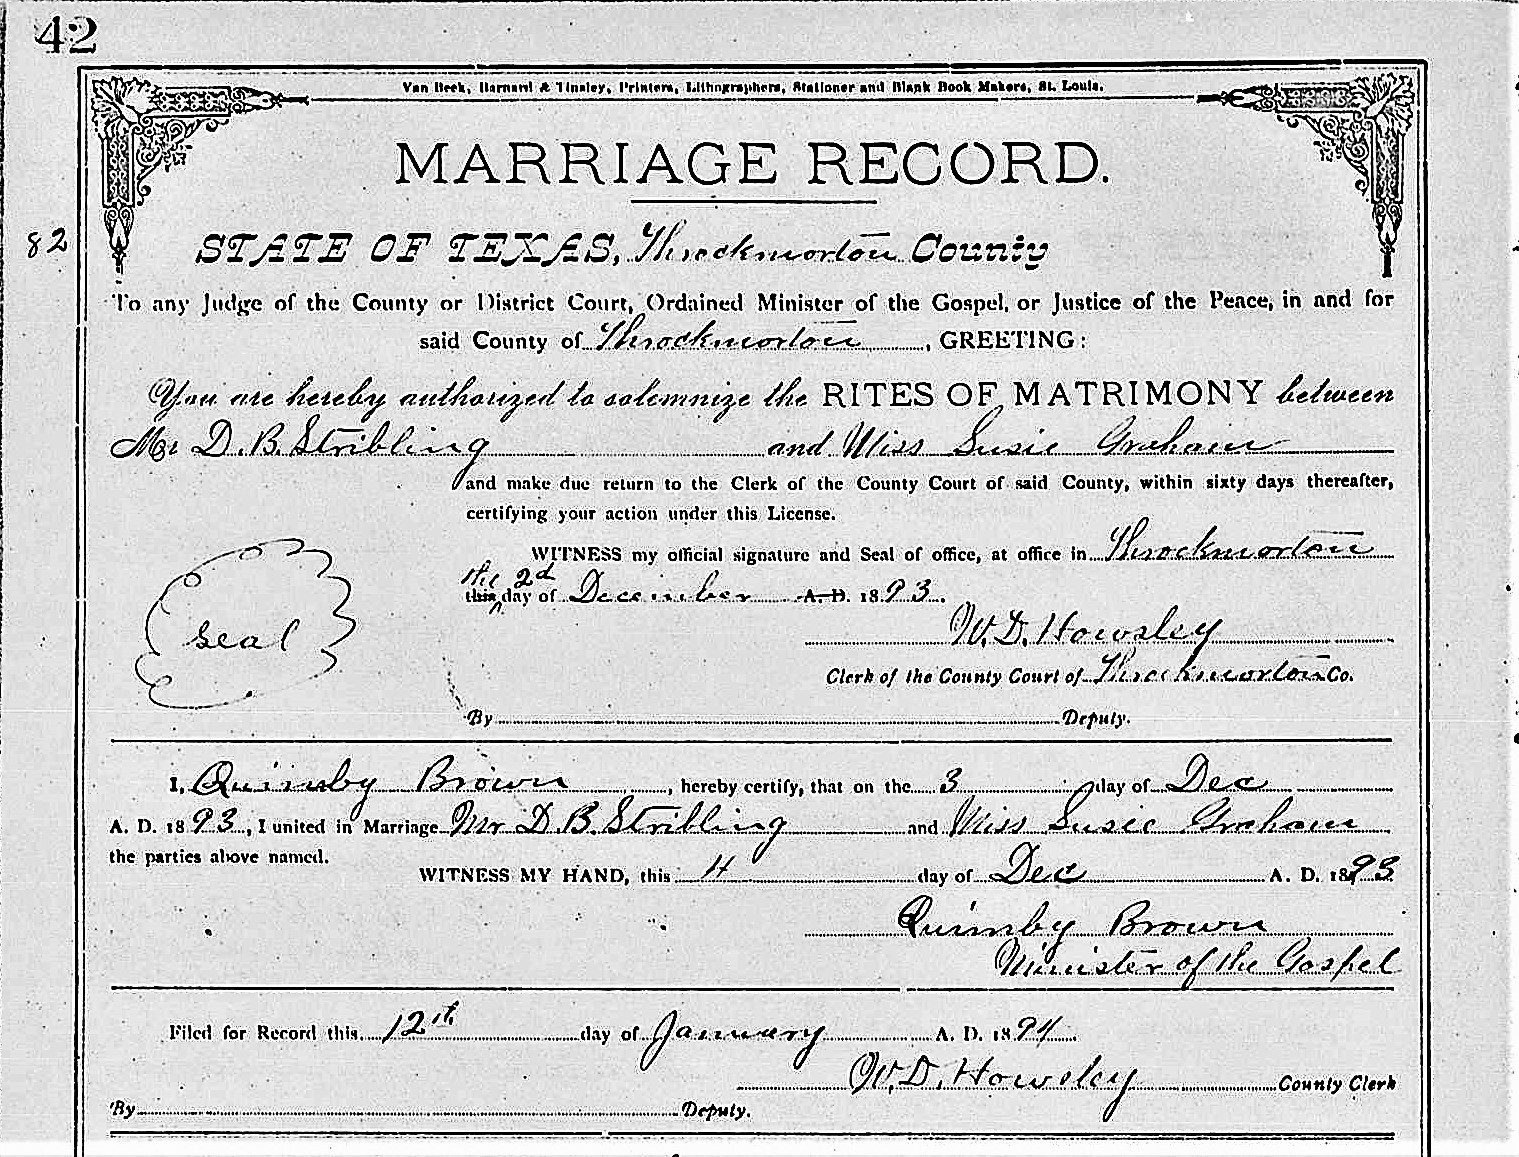 42
Van Beek, Barnard & Tinsley, Printers, Lithographers, Stationer and Blank Book Makers, St. Louis.
MARRIAGE RECORD.
82
STATE OF TEXAS, Throckmorton County
To any Judge of the County or District Court, Ordained Minister of the Gospel, or Justice of the Peace, in and for
said County of Throckmorton, GREETING:
You are hereby authorized to solemnize the RITES OF MATRIMONY between
Mr D. B. Stribling and Miss Susie Graham
and make due return to the Clerk of the County Court of said County, within sixty days thereafter,
certifying your action under this License.
WITNESS my official signature and Seal of office, at office in Throckmorton
the 2d
this day of December A. D. 1893.
Seal
W. D. Howsley
Clerk of the County Court of Throckmorton Co.
By Deputy.
I, Quimby Brown, hereby certify, that on the 3 day of Dec
A. D. 1893, I united in Marriage Mr D. B. Stribling and Miss Susie Graham
the parties above named.
WITNESS MY HAND, this 4 day of Dec A. D. 1893
Quimby Brown
Minister of the Gospel
Filed for Record this 12th day of January A. D. 1894.
W. D. Howsley County Clerk
By Deputy.